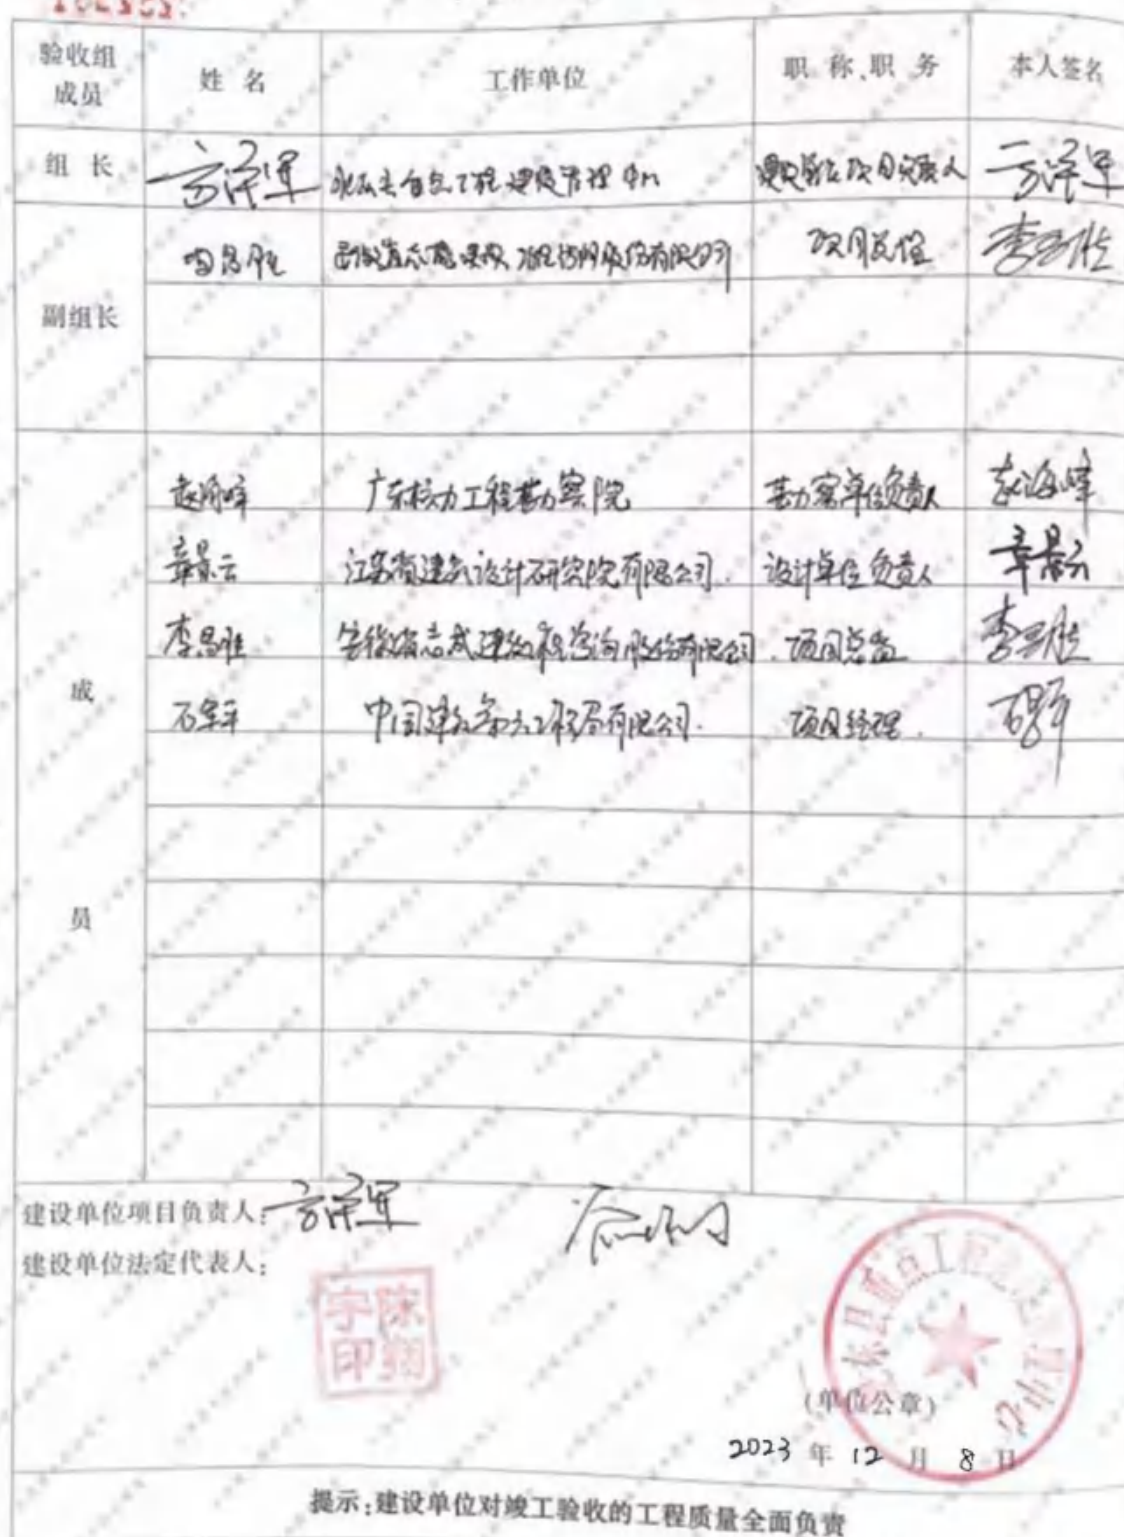 验收组成员 姓 名 工作单位 职 称、职 务 本人签名
组 长 方泽军 重点工程建设管理中心 建设单位项目负责人 方泽军
副组长 李昌胜 股份有限公司 项目总监 李昌胜
成员
赵海峰 广东核力工程勘察院 勘察单位负责人 赵海峰
章景云 江苏省建筑设计研究院有限公司 设计单位负责人 章景云
李昌胜 安徽省志成建设工程咨询股份有限公司 项目总监 李昌胜
石 中国建筑第 工程局有限公司 项目经理
建设单位项目负责人: 方泽军
建设单位法定代表人:
陈翔宇印
县重点工程建设管理中心
(单位公章)
2023 年 12 月 8 日
提示:建设单位对竣工验收的工程质量全面负责